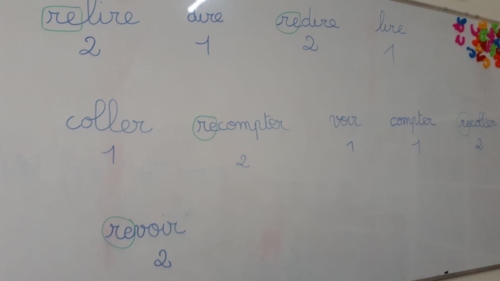 relire dire redire lire
2 1 2 1
coller recompter voir compter recoller
1 2 1 1 2
revoir
2